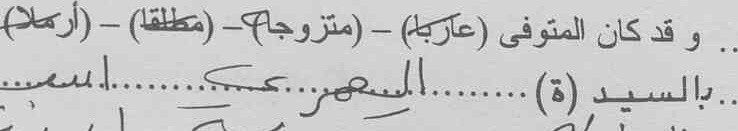 .. و قد كان المتوفى (عازبا) - (متزوجا) - (مطلقا) - (أرملا)
.. بالسيد (ة) ........